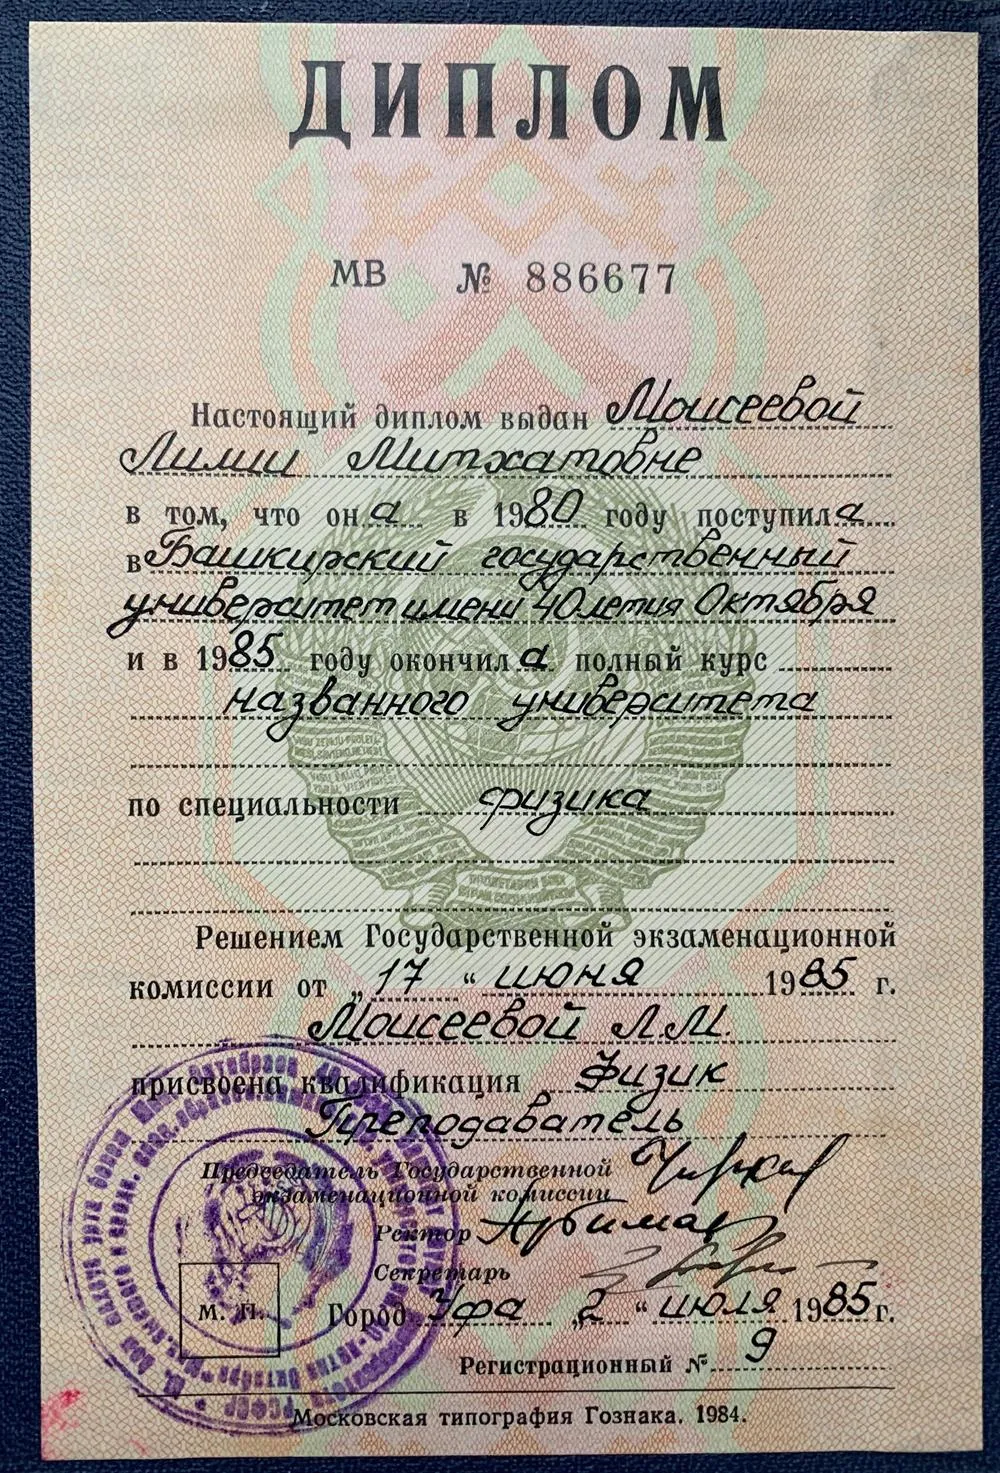 ДИПЛОМ
МВ № 886677
Настоящий диплом выдан Моисеевой
Лилии Митхатовне
в том, что она в 1980 году поступила
в Башкирский государственный
университет имени 40-летия Октября
и в 1985 году окончила полный курс
названного университета
по специальности физика
Решением Государственной экзаменационной
комиссии от „17“ июня 1985 г.
Моисеевой Л.М.
присвоена квалификация Физик
Преподаватель
Председатель Государственной
экзаменационной комиссии
Ректор
Секретарь
М. П.
Город Уфа „2“ июля 1985 г.
Регистрационный № 9
Московская типография Гознака. 1984.